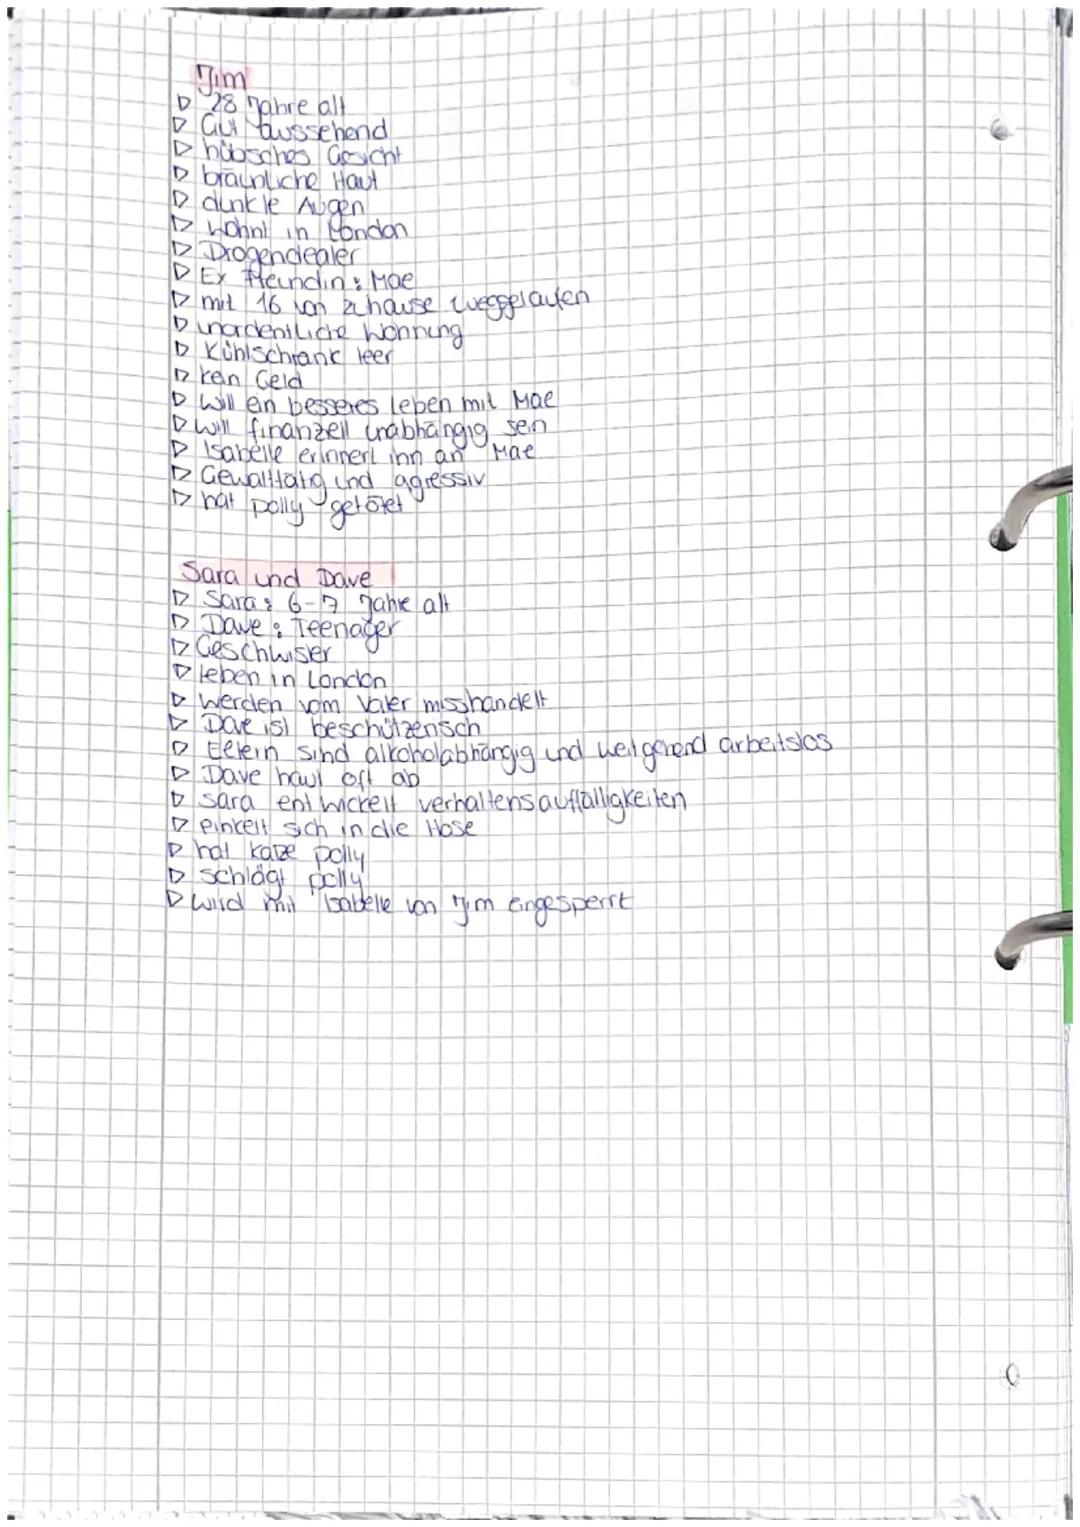 Jim
▷ 28 Jahre alt
▷ Gut aussehend
▷ hübsches Gesicht
▷ bräunliche Haut
▷ dunkle Augen
▷ wohnt in London
▷ Drogendealer
▷ Ex Freundin: Mae
▷ mit 16 von zuhause weggelaufen
▷ unordentliche Wohnung
▷ Kühlschrank leer
▷ kein Geld
▷ will ein besseres leben mit Mae
▷ will finanzell unabhängig sein
▷ Isabelle erinnert ihn an Mae
▷ Gewalttätig und agressiv
▷ hat polly getötet
Sara und Dave
▷ Sara: 6-7 Jahre alt
▷ Dave: Teenager
▷ Geschwister
▷ leben in London
▷ werden vom Vater misshandelt
▷ Dave ist beschützensch
▷ Eltern sind alkoholabhängig und weitgehend arbeitslos
▷ Dave haut oft ab
▷ Sara entwickelt verhaltensauffälligkeiten
▷ pinkelt sich in die Hose
▷ hat katze polly
▷ schlägt polly
▷ wird mit Isabelle von Jim eingesperrt